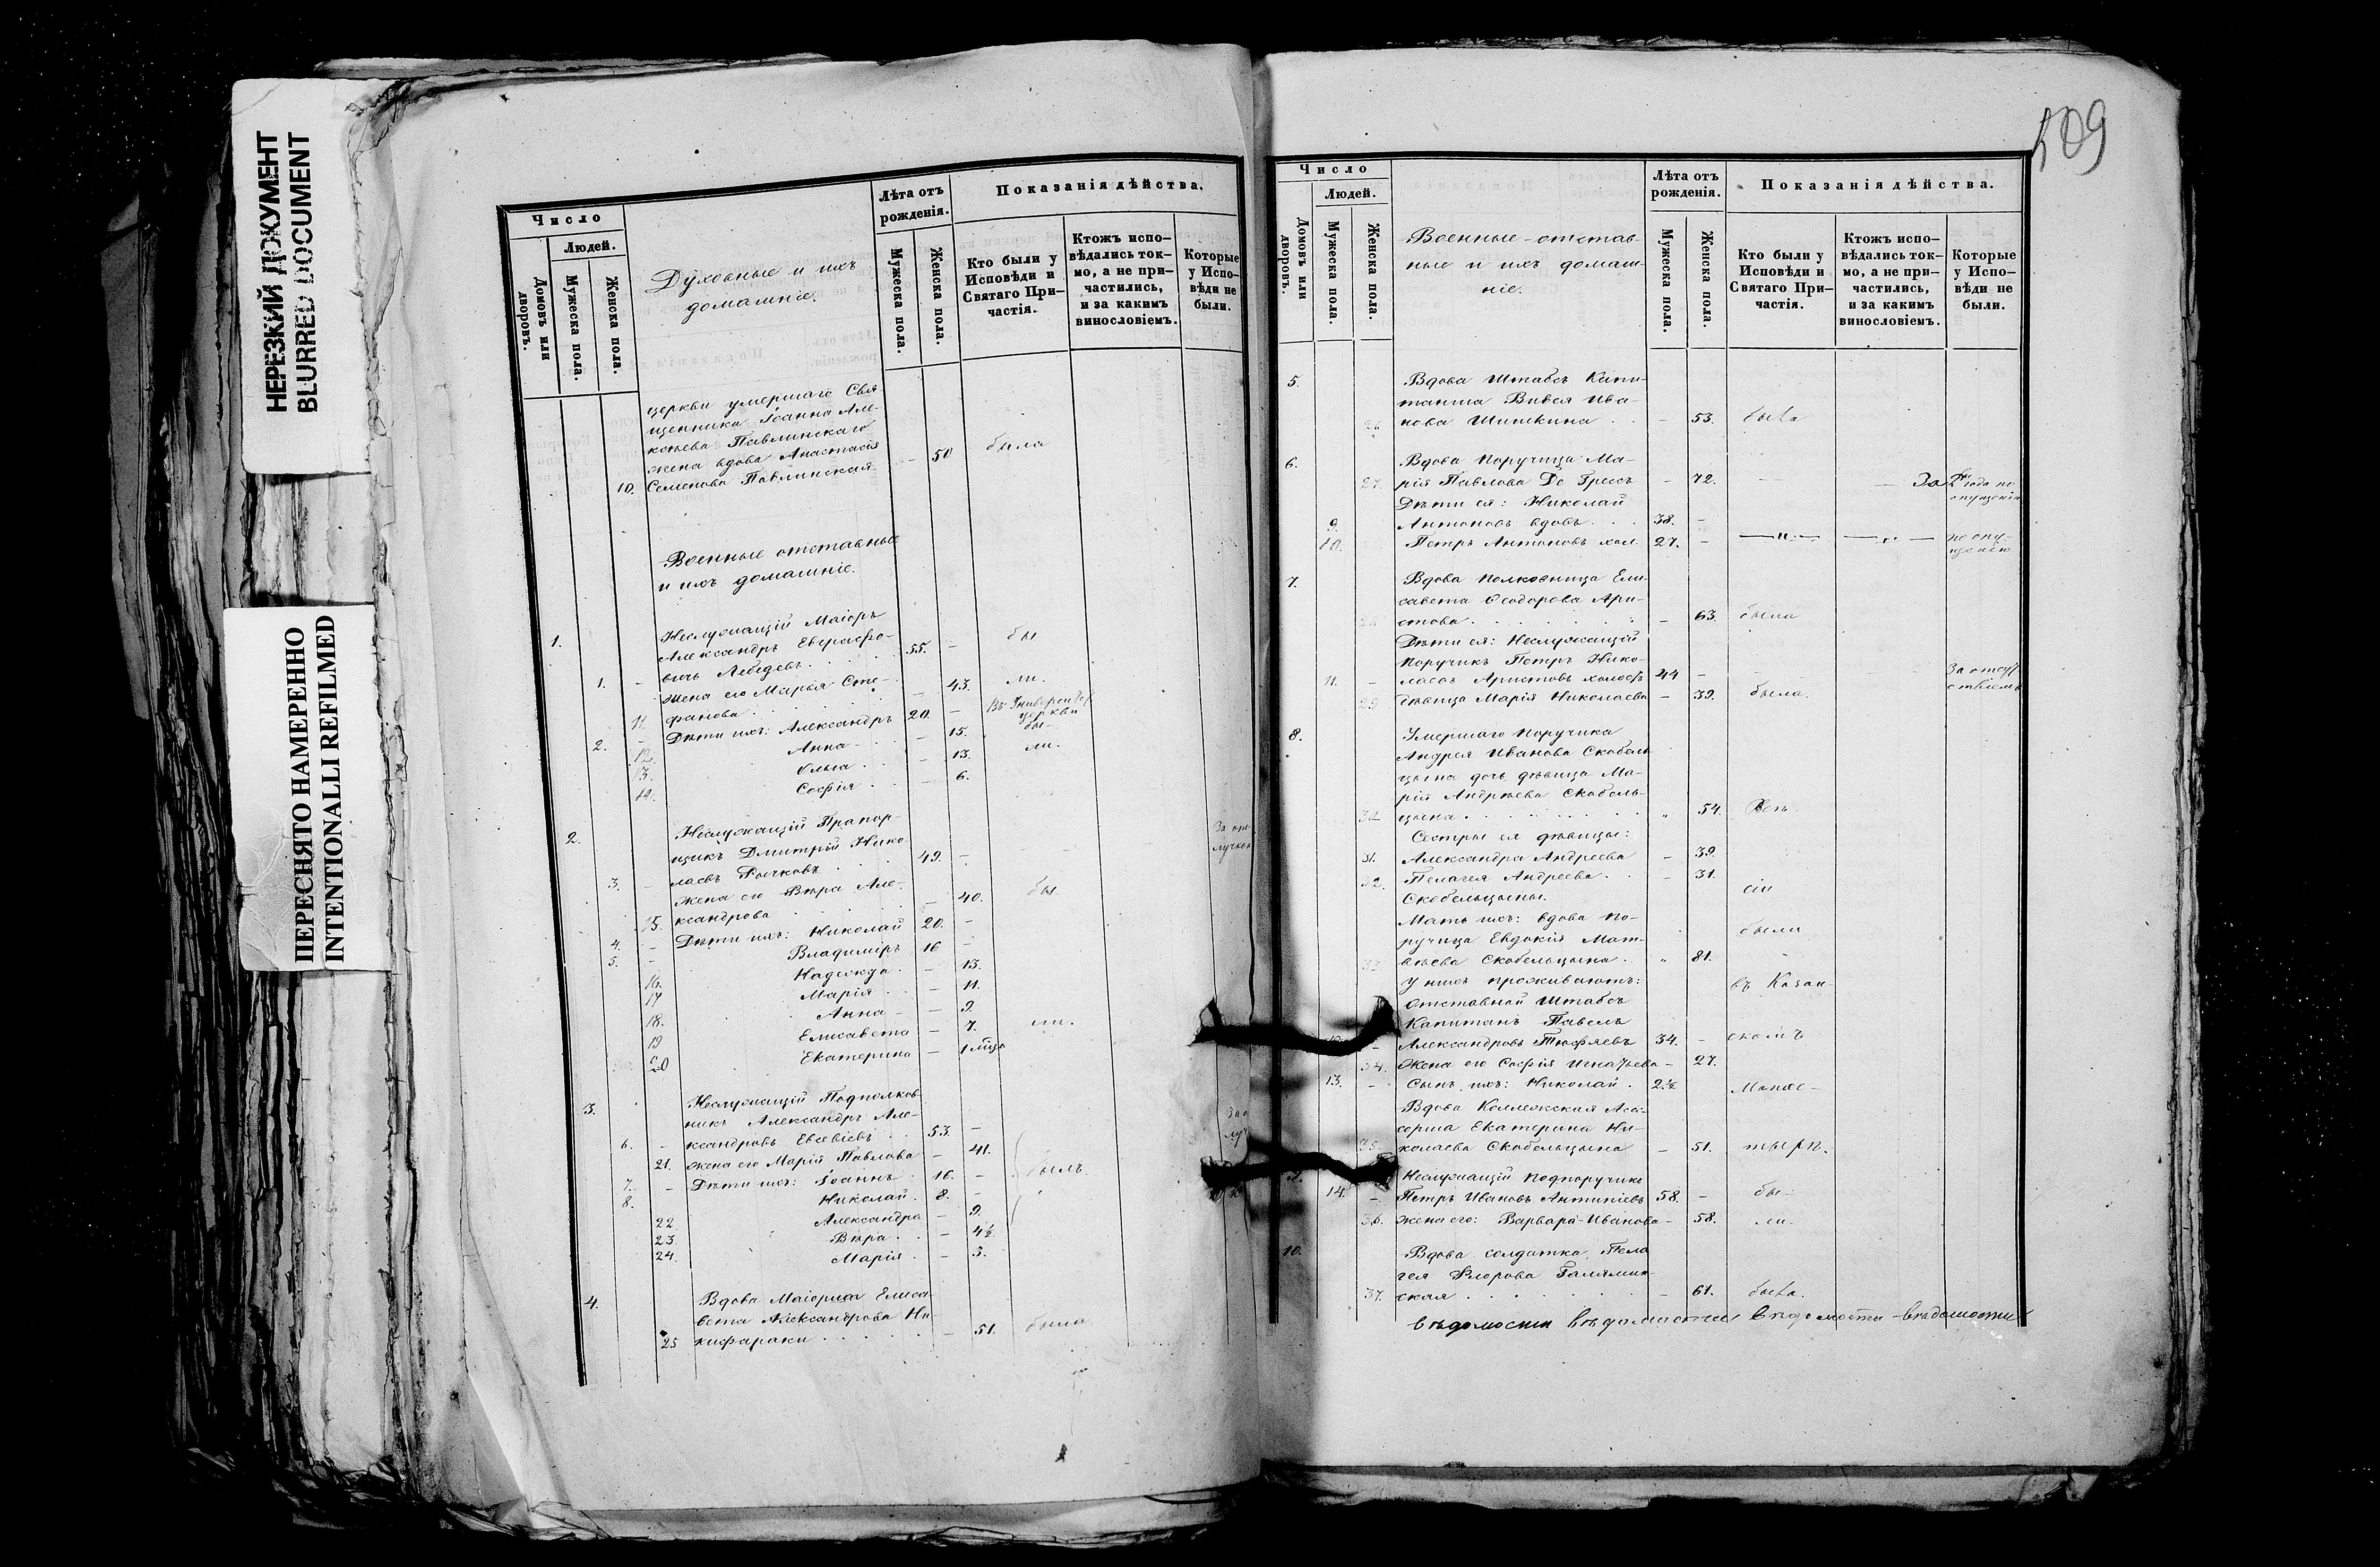 НЕРЕЗКИЙ ДОКУМЕНТ
BLURRED DOCUMENT
ПЕРЕСНЯТО НАМЕРЕННО
INTENTIONALLI REFILMED
Число
Людей.
Домовъ или дворовъ.
Мужеска пола.
Женска пола.
Духовные и ихъ
домашніе.
Лѣта отъ
рожденія.
Мужеска пола.
Женска пола.
Показанія дѣйства.
Кто были у
Исповѣди и
Святаго При-
частія.
Ктожъ испо-
вѣдались ток-
мо, а не при-
частились,
и за какимъ
винословіемъ.
Которые
у Испо-
вѣди не
были.
церкви умершаго Свя
щенника Іоанна Але-
Павлинскаго
жена вдова Анастасія
10. Семенова Павлинская. - 50 была
Военные отставные
и ихъ домашніе.
1. Неслужащій Маіоръ
Александръ Евграфо-
1. - вичь Лебедевъ. 55. - бы
жена его Марья Сте-
11. фанова - 43. ли.
2. - Дѣти ихъ: Александръ 20. - Въ Университ церкви
12. Анна - 15. бы-
13. Ольга - 13. ли.
14. Софія - 6.
2. Неслужащій Прапор-
щикъ Дмитрій Нико
3. - лаевъ Рычковъ 49. - За от
лучкою
жена его Вѣра Але-
15. ксандрова - 40. бы
4. - Дѣти ихъ: Николай 20. -
5. - Владиміръ 16 -
16. Надежда - 13.
17 Марія - 11.
18. Анна - 9.
19 Елисавета - 7. ли.
20 Екатерина - 1 мѣця
3. Неслужащій Подполков
никъ Александръ Але-
6. - ксандровъ Евсевіевъ 53. -
21. жена его Марія Павлова - 41.
7. - Дѣти ихъ: Іоаннъ 16. - былъ
8. Николай. 8. -
22 Александра - 9.
23 Вѣра - 4½
24. Марія - 3.
4. Вдова Маіорша Елиса
вета Александрова Ни-
25 кифораки - 51. была
509
Число
Людей.
Домовъ или дворовъ.
Мужеска пола.
Женска пола.
Военные отстав-
ные и ихъ домаш-
ніе.
Лѣта отъ
рожденія.
Мужеска пола.
Женска пола.
Показанія дѣйства.
Кто были у
Исповѣди и
Святаго При-
частія.
Ктожъ испо-
вѣдались ток-
мо, а не при-
частились,
и за какимъ
винословіемъ.
Которые
у Испо-
вѣди не
были.
5. Вдова Штабсъ Капи-
танша Ива-
26 нова Шишкина - 53. была
6. Вдова Поручица Ма-
27. рія Павлова Де - 72. - За 2 года по
опущенію
Дѣти ея: Николай
9. Антоновъ вдовъ 38. -
10. Петръ Антоновъ хол. 27. - по опу-
щенію
7. Вдова Полковница Ели-
савета Ѳеодорова Ари-
28 стова - 63. была
Дѣти ея: Неслужащій
Поручикъ Петръ Нико-
11. - лаевъ Аристовъ холостъ 44 - За отсут
ствіемъ
29 дѣвица Марія Николаева - 39. была.
8. Умершаго Поручика
Андрея Иванова Скобель
цына дочь дѣвица Ма-
рія Андрѣева Скобель-
30 цына " 54.
Сестры ея дѣвицы:
31. Александра Андреева - 39.
32. Пелагея Андреева - 31. сіи
Скобельцыны.
Мать ихъ: вдова По- были
ручица Евдокія Мат-
33. вѣева Скобельцына " 81.
У нихъ проживаютъ: въ Казан-
Отставной Штабсъ
Капитанъ Павелъ
12. - Александровъ Тюфяевъ 34. - скомъ
34. Жена его Софія Игнатьева - 27.
13. - Сынъ ихъ: Николай. 2½ Монас-
Вдова Коллежская Ассе-
сорша Екатерина Ни-
35. колаева Скобельцына - 51. тырѣ.
9. Неслужащій Подпоручикъ
14. - Петръ Ивановъ 58. - бы-
36. жена его: Варвара Иванова - 58. ли.
10. Вдова солдатка Пела
гея Флорова
37. ская - 61. была.
вѣдомости вѣдомости вѣдомости вѣдомости